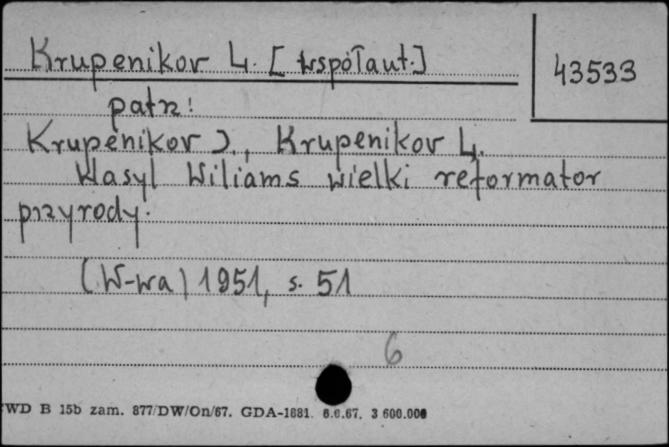 Krupenikov L. [współaut.]
43533
patrz:
Krupenikov J., Krupenikov L.
Wasyl Wiliams wielki reformator
przyrody.
(W-wa) 1951, s. 51
6
WD B 15b zam. 877/DW/On/67. GDA-1881. 6.6.67. 3 600.000